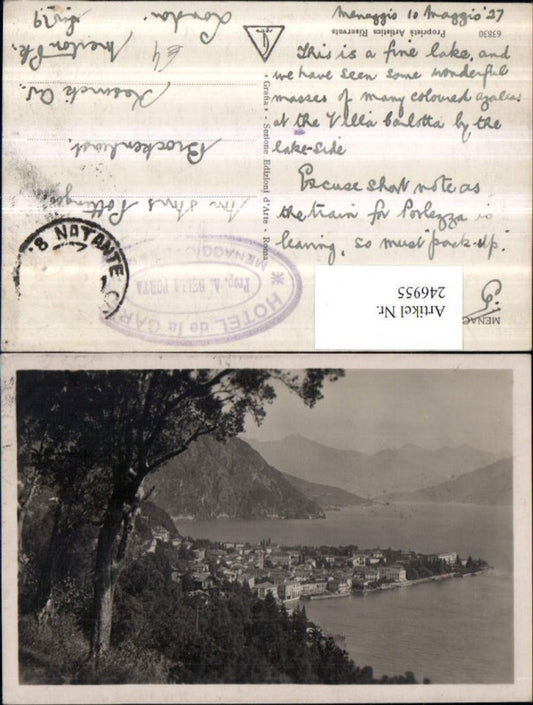 Menaggio 10 Maggio '27
This is a fine lake, and
we have seen some wonderful
masses of many coloured azaleas
at the Villa Carlotta by the
lake-side
Excuse short note as
the train for Porlezza is
leaving, so must "pack-up".
63830
Proprietà Artistica Riservata
Grafia - Sezione Edizioni d'Arte - Roma
MENAG
Brockenhurst,
Keswick
London.
NATANTE
HOTEL de la GARE
MENAGGIO
Prop. A. DELLA PORTA
Artikel Nr.
246955